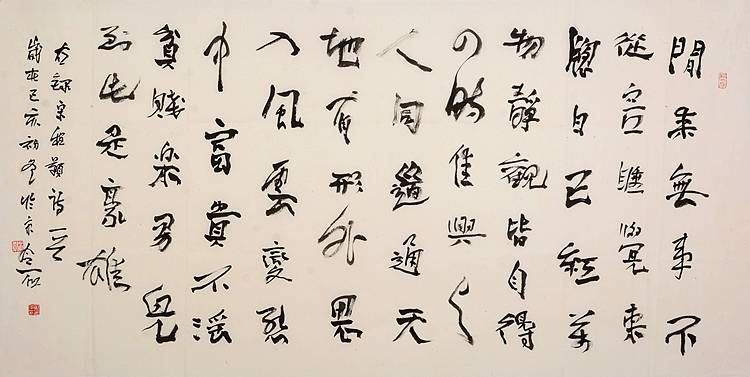 閒来無事不
從容睡覺東
窗日已紅萬
物靜觀皆自得
四時佳興与
人同道通天
地有形外思
入風雲變態
中富貴不淫
貧賤樂男兒
到此是豪雄
右録宋程顥詩一首
歲在己亥初冬於京